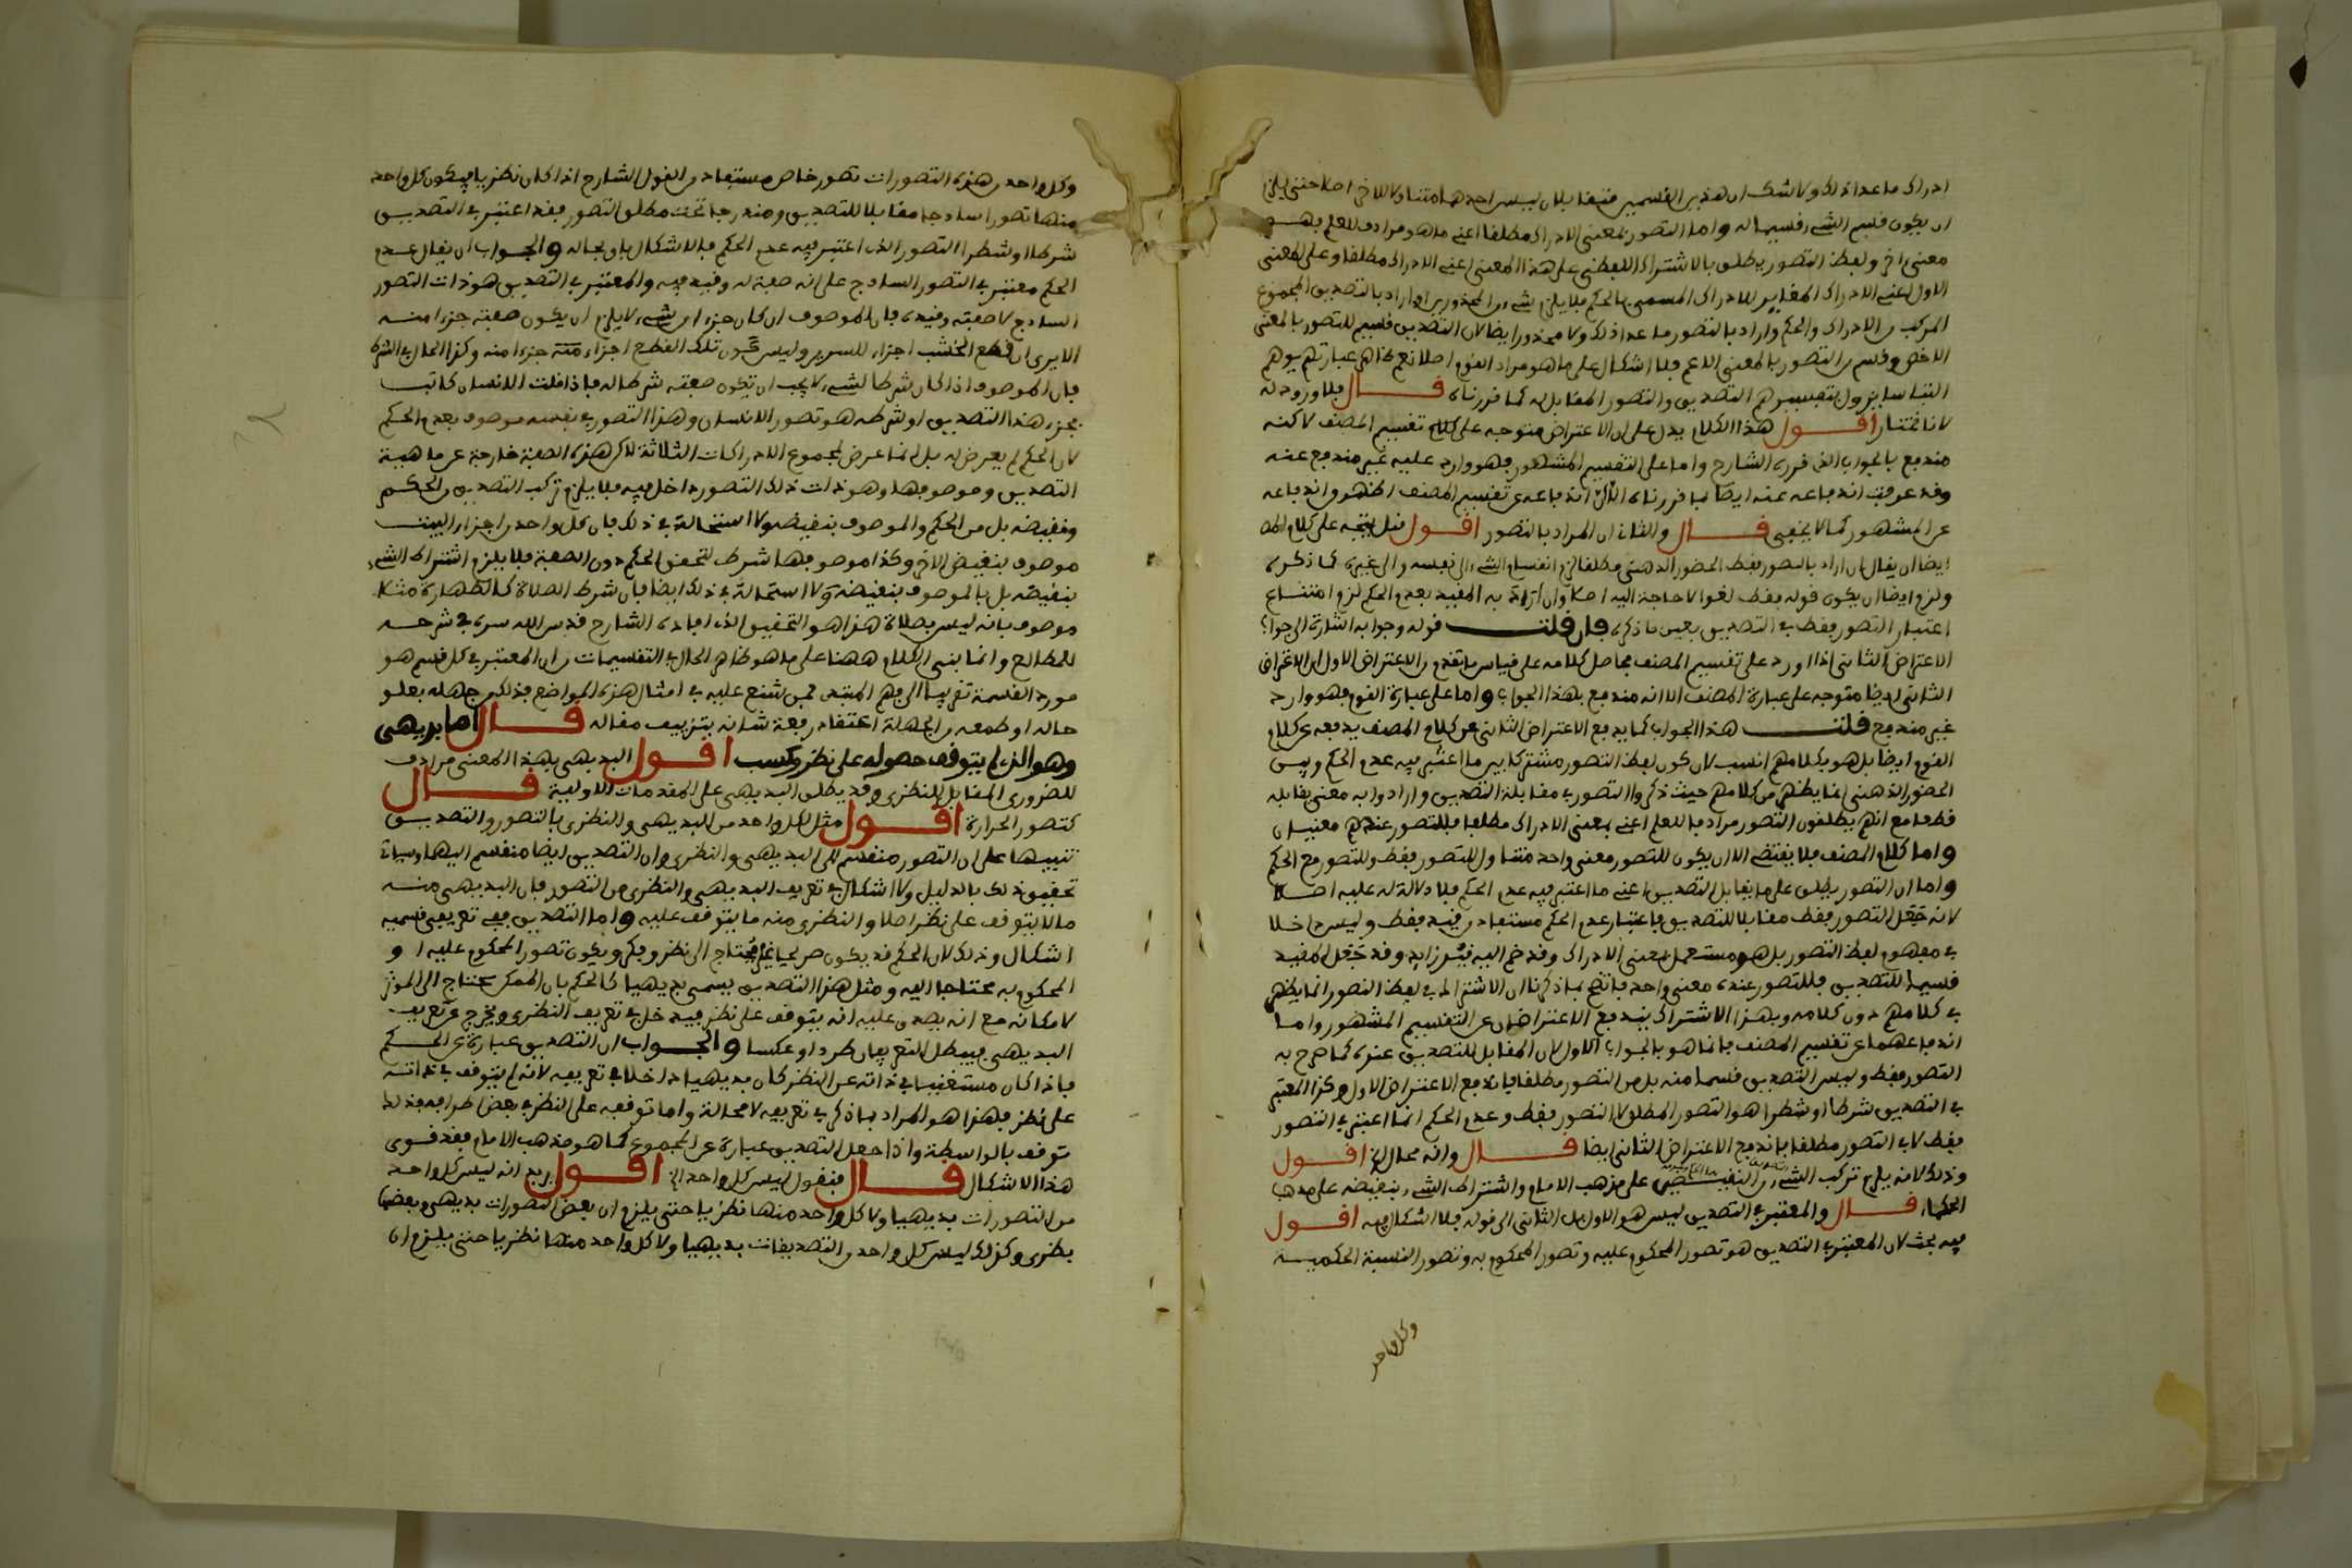 ادراك ما عدا ذلك ولا شك ان هذين القسمين متقابلان ليس احدهما متناولا للاخر اصلا حتى يلزم
ان يكون قسم الشيء قسيما له واما التصور بمعنى الادراك مطلقا اعني ما هو مرادف للعلم فهو
معنى اخر ولفظ التصور يطلق بالاشتراك اللفظي على هذا المعنى اعني الادراك مطلقا وعلى المعنى
الاول اعني الادراك المغاير للادراك المسمى بالحكم فلا يلزم شيء من المحذورين او اراد بالتصديق المجموع
المركب من الادراك والحكم واراد بالتصور ما عدا ذلك ولا محذور ايضا لان التصديق قسيم للتصور بالمعنى
الاخص وقسم من التصور بالمعنى الاعم فلا اشكال على ما هو مراد القوم اصلا نعم ظاهر عبارتهم يوهم
التباسا يزول بتفسيرهم التصديق والتصور المقابل له كما قررناه قال فلا ورود له
لانا نختار اقول هذا الكلام يدل على ان الاعتراض متوجه على كلام تقسيم المصنف لاكنه
مندفع بالجواب الذي قرره الشارح واما على التقسيم المشهور فهو وارد عليه غير مندفع عنه
وقد عرفت اندفاعه عنه ايضا بما قررناه الان اندفاعه عن تقسيم المصنف اظهر واندفاعه
عن المشهور كما لا يخفى قال والثاني ان المراد بالتصور اقول قيل يتجه على كلام المص
ايضا ان يقال ان اراد بالتصور فقط الحضور الذهني مطلقا لزم انقسام الشيء الى نفسه والى غيره كما ذكره
ولزم ايضا ان يكون قوله فقط لغوا لا حاجة اليه اصلا وان اراد به المقيد بعدم الحكم لزم امتناع
اعتبار التصور فقط في التصديق بعين ما ذكره فان قلت قوله وجوابه اشارة الى جواب
الاعتراض الثاني اذا اورد على تقسيم المصنف فحاصل كلامه على قياس ما تقدم من الاعتراض الاول ان الاعتراض
الثاني ايضا متوجه على عبارة المصنف الا انه مندفع بهذا الجواب واما على عبارة القوم فهو وارد
غير مندفع قلت هذا الجواب كما يدفع الاعتراض الثاني عن كلام المصنف يدفعه عن كلام
القوم ايضا بل هو بكلامهم انسب لان كون لفظ التصور مشتركا بين ما اعتبر فيه عدم الحكم وبين
الحضور الذهني انما يظهر من كلامهم حيث ذكروا التصور في مقابلة التصديق وارادوا به معنى يقابله
قطعا مع انهم يطلقون التصور مرادفا للعلم اعني بمعنى الادراك مطلقا فللتصور عندهم معنيان
واما كلام المصنف فلا يقتضي الا ان يكون للتصور معنى واحد متناول للتصور فقط وللتصور مع الحكم
واما ان التصور يطلق على ما يقابل التصديق اعني ما اعتبر فيه عدم الحكم فلا دلالة له عليه اصلا
لانه جعل التصور فقط مقابلا للتصديق فاعتبار عدم الحكم مستفاد من قيد فقط وليس داخلا
في مفهوم لفظ التصور بل هو مستعمل بمعنى الادراك وقد ضم اليه قيد زايد وقد جعل المقيد
قسيما للتصديق فللتصور عنده معنى واحد فاتضح بما ذكرنا ان الاشتراك في لفظ التصور انما يظهر
في كلامهم دون كلامه وبهذا الاشتراك يندفع الاعتراضان عن التقسيم المشهور واما
اندفاعهما عن تقسيم المصنف فانما هو بالجواب الاول لان المقابل للتصديق عنده كما صرح به
التصور فقط وليس التصديق قسما منه بل من التصور مطلقا فاندفع الاعتراض الاول وكذا المعتبر
في التصديق شرطا او شطرا هو التصور المطلق لا التصور فقط وعدم الحكم انما اعتبر في التصور
فقط لا في التصور مطلقا فاندفع الاعتراض الثاني ايضا قال وانه محال الخ اقول
وذلك لانه يلزم تركب الشيء من النقيضين على مذهب الامام واشتراط الشيء بنقيضه على مذهب
الحكماء قال والمعتبر في التصديق ليس هو الاول بل الثاني الى قوله فلا اشكال فيه اقول
فيه بحث لان المعتبر في التصديق هو تصور المحكوم عليه وتصور المحكوم به وتصور النسبة الحكمية
وكل واحد
وكل واحد من هذه التصورات تصور خاص مستفاد من القول الشارح اذا كان نظريا فيكون كل واحد
منها تصورا ساذجا مقابلا للتصديق ومندرجا تحت مطلق التصور فقد اعتبر في التصديق
شرطا او شطرا التصور الذي اعتبر فيه عدم الحكم فالاشكال باق بحاله والجواب ان يقال عدم
الحكم معتبر في التصور الساذج على انه صفة له وقيد فيه والمعتبر في التصديق هو ذات التصور
الساذج لا صفته وقيده فان الموصوف ان كان جزءا من شيء لا يلزم ان يكون صفته جزءا منه
الا يرى ان قطع الخشب اجزاء للسرير وليس كون تلك القطع اجزاء منه جزءا منه وكذا الحال في الشرط
فان الموصوف اذا كان شرطا لشيء لا يجب ان تكون صفته شرطا له فاذا قلت الانسان كاتب
فجزء هذا التصديق او شرطه هو تصور الانسان وهذا التصور في نفسه موصوف بعدم الحكم
لان الحكم لم يعرض له بل انما عرض لمجموع الادراكات الثلاثة لاكن هذه الصفة خارجة عن ماهية
التصديق وموصوفها وهو ذات ذلك التصور داخل فيه فلا يلزم تركب التصديق من الحكم
ونقيضه بل من الحكم والموصوف بنقيضه ولا استحالة في ذلك فان كل واحد من اجزاء البيت
موصوف بنقيض الاخر وكذا موصوفها شرط لتحقق الحكم دون الصفة فلا يلزم اشتراط الشيء
بنقيضه بل بالموصوف بنقيضه ولا استحالة في ذلك ايضا فان شرط الصلاة كالطهارة مثلا
موصوف بانه ليس بصلاة هذا هو التحقيق الذي افاده الشارح قدس الله سره في شرحه
للمطالع وانما بنى الكلام ههنا على ما هو ظاهر الحال في التقسيمات من ان المعتبر في كل قسم هو
مورد القسمة تقريبا الى فهم المبتدي فمن شنع عليه في امثال هذه المواضع فذلك من جهله بعلو
حاله او طمعه من الجهلة اعتقاد رفعة شانه بتزييف مقاله قال اما بديهي
وهو الذي لم يتوقف حصوله على نظر وكسب اقول البديهي بهذا المعنى مرادف
للضروري المقابل للنظري وقد يطلق البديهي على المقدمات الاولية قال
كتصور الحرارة اقول مثل لكل واحد من البديهي والنظري بالتصور والتصديق
تنبيها على ان التصور منقسم الى البديهي والنظري وان التصديق ايضا منقسم اليهما وسياتي
تحقيق ذلك بالدليل ولا اشكال في تعريف البديهي والنظري من التصور فان البديهي منه
ما لا يتوقف على نظر اصلا والنظري منه ما يتوقف عليه واما التصديق ففي تعريفي قسميه
اشكال وذلك لان الحكم قد يكون غير محتاج الى نظر وفكر ويكون تصور المحكوم عليه او
المحكوم به محتاجا اليه ومثل هذا التصديق يسمى بديهيا كالحكم بان الممكن محتاج الى المؤثر
لامكانه مع انه يصدق عليه انه يتوقف على نظر فيدخل في تعريف النظري ويخرج عن تعريف
البديهي فيبطل التعريفان طردا وعكسا والجواب ان التصديق عبارة عن الحكم
فاذا كان مستغنيا في ذاته عن النظر كان بديهيا داخلا في تعريفه لانه لم يتوقف في ذاته
على نظر فهذا هو المراد بما ذكر في تعريفه لا محالة واما توقفه على النظر في بعض اطرافه فذلك
توقف بالواسطة واذا جعل التصديق عبارة عن المجموع كما هو مذهب الامام فقد قوى
هذا الاشكال قال فنقول ليس كل واحد الخ اقول يريد انه ليس كل واحد
من التصورات بديهيا ولا كل واحد منها نظريا حتى يلزم ان بعض التصورات بديهي وبعضها
نظري وكذلك ليس كل واحد من التصديقات بديهيا ولا كل واحد منها نظريا حتى يلزم ان